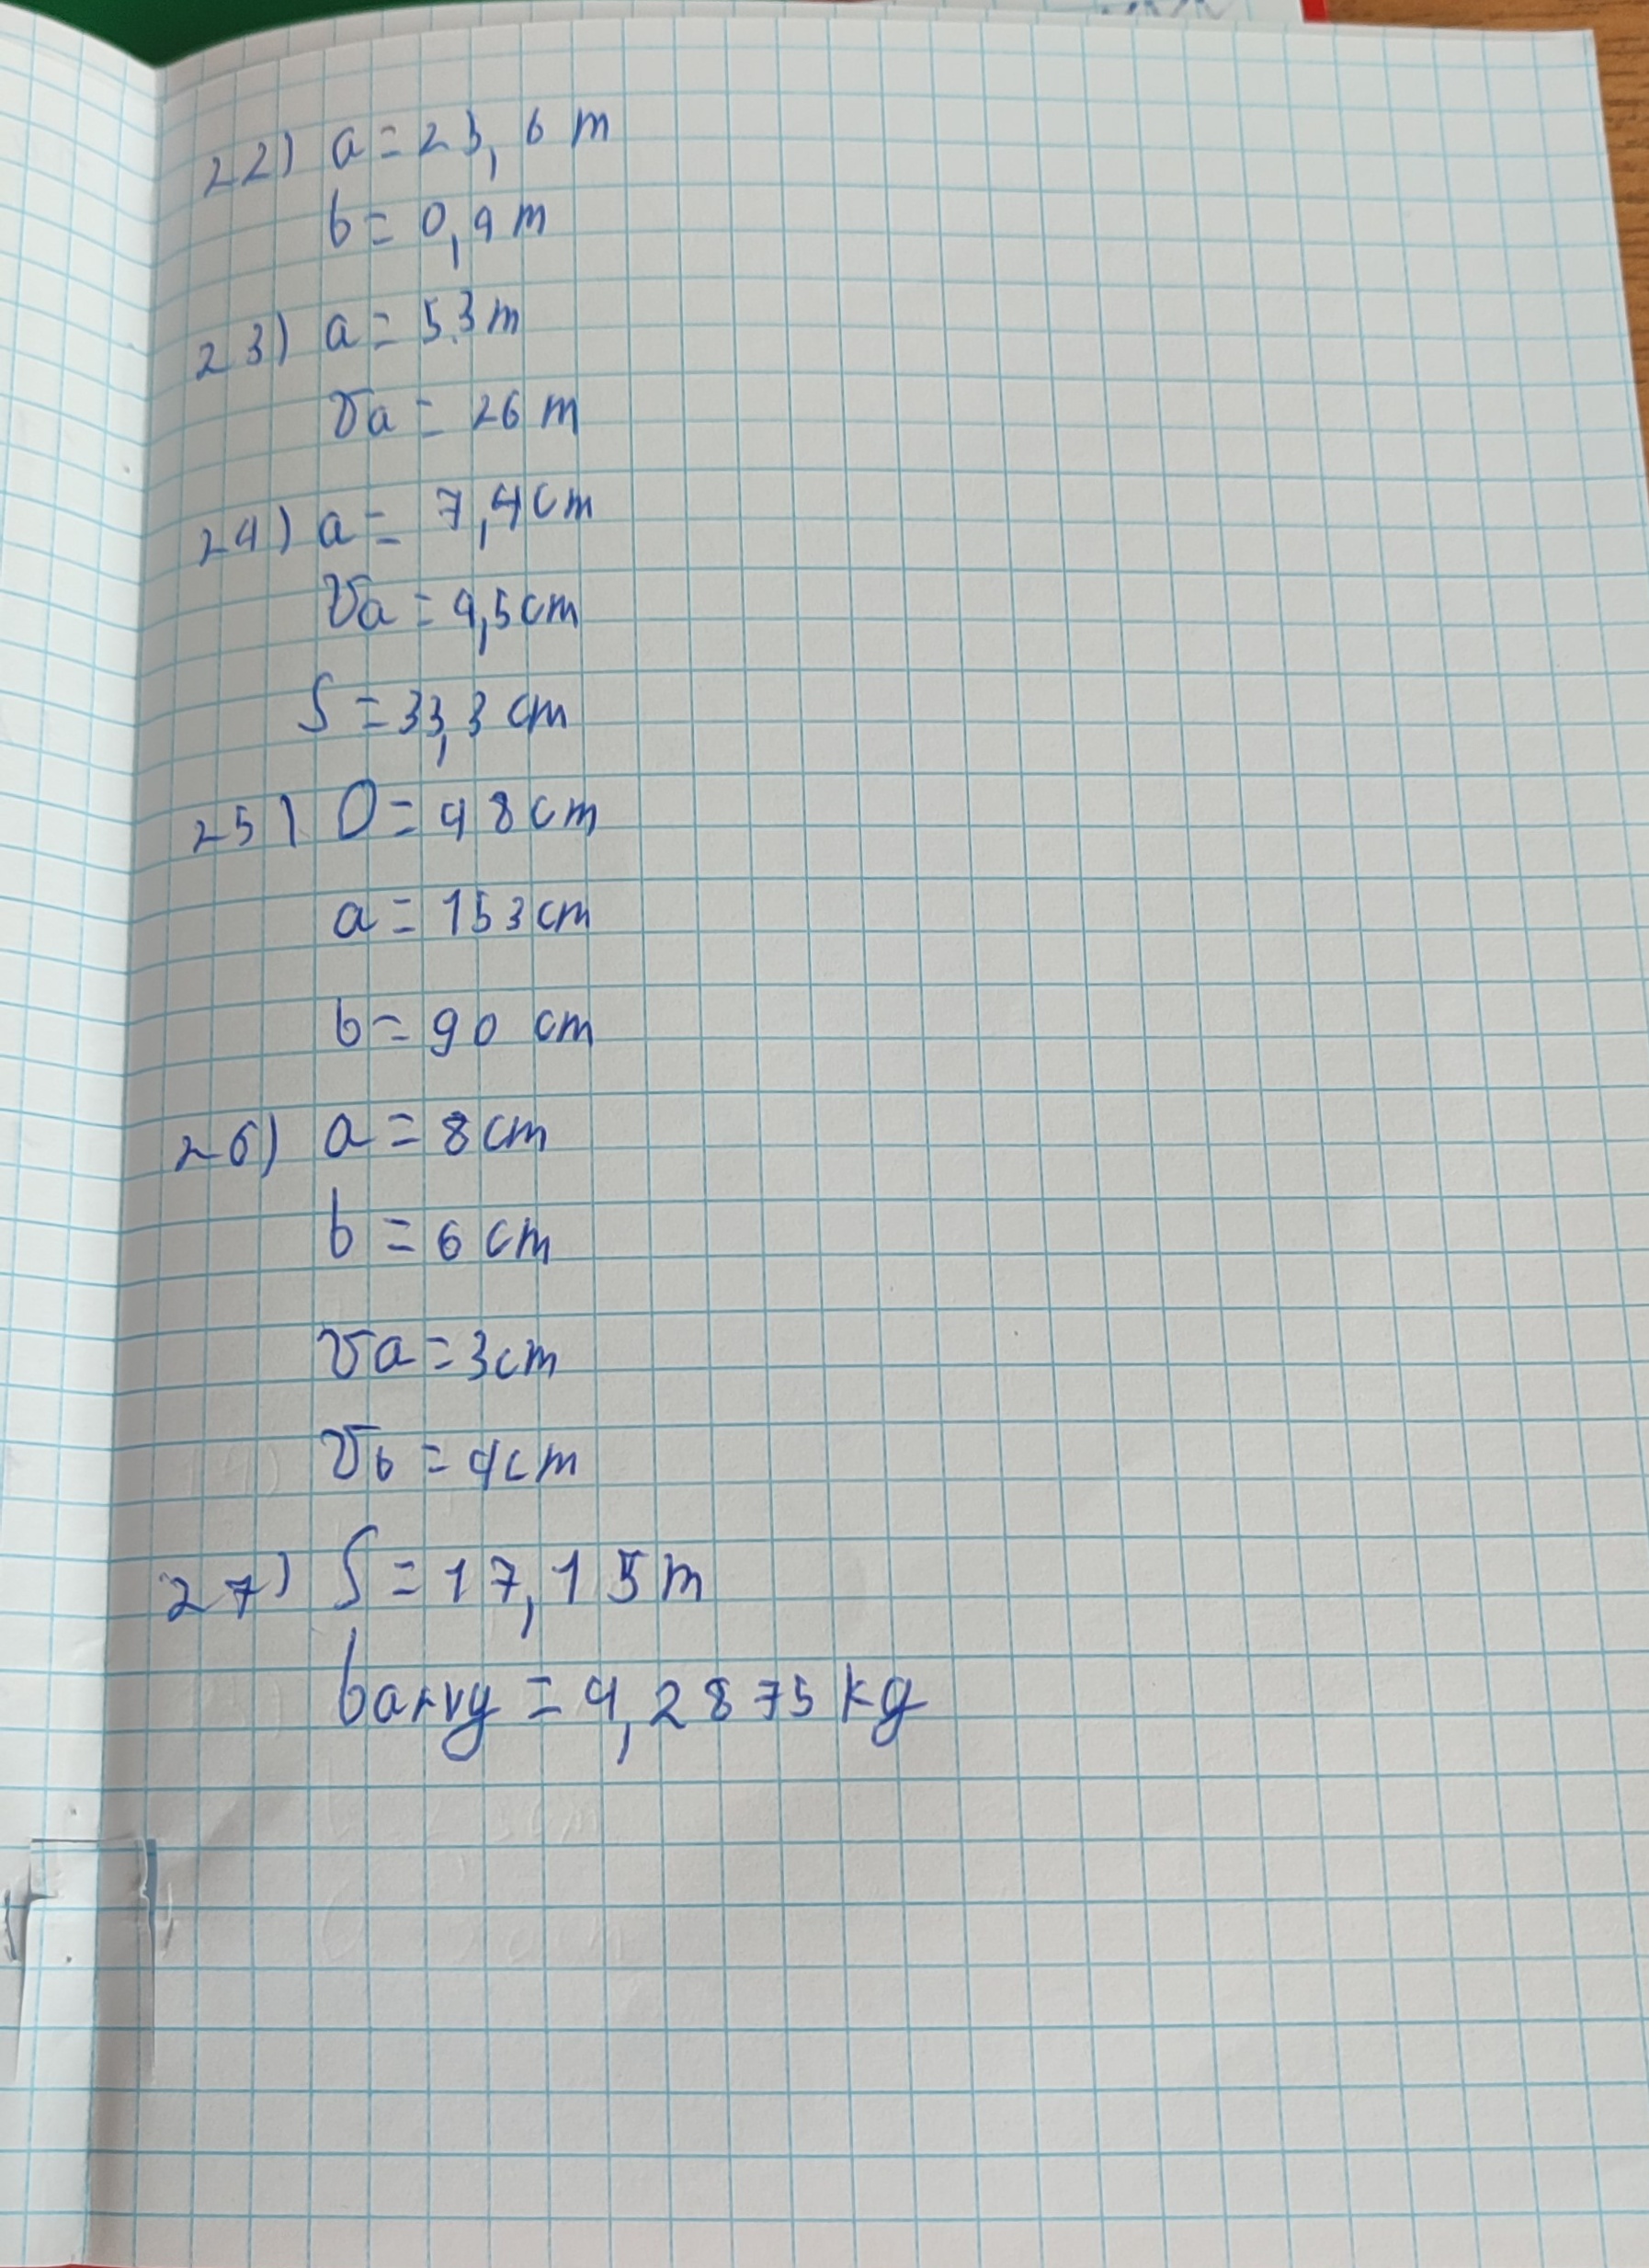 22) a = 23,6 m
b = 0,4 m
23) a = 5.3 m
va = 26 m
24) a = 7,4 cm
va = 4,5 cm
S = 33,3 cm
25) O = 48 cm
a = 153 cm
b = 90 cm
26) a = 8 cm
b = 6 cm
va = 3 cm
vb = 4 cm
27) S = 17,15 m
barvy = 4,2875 kg